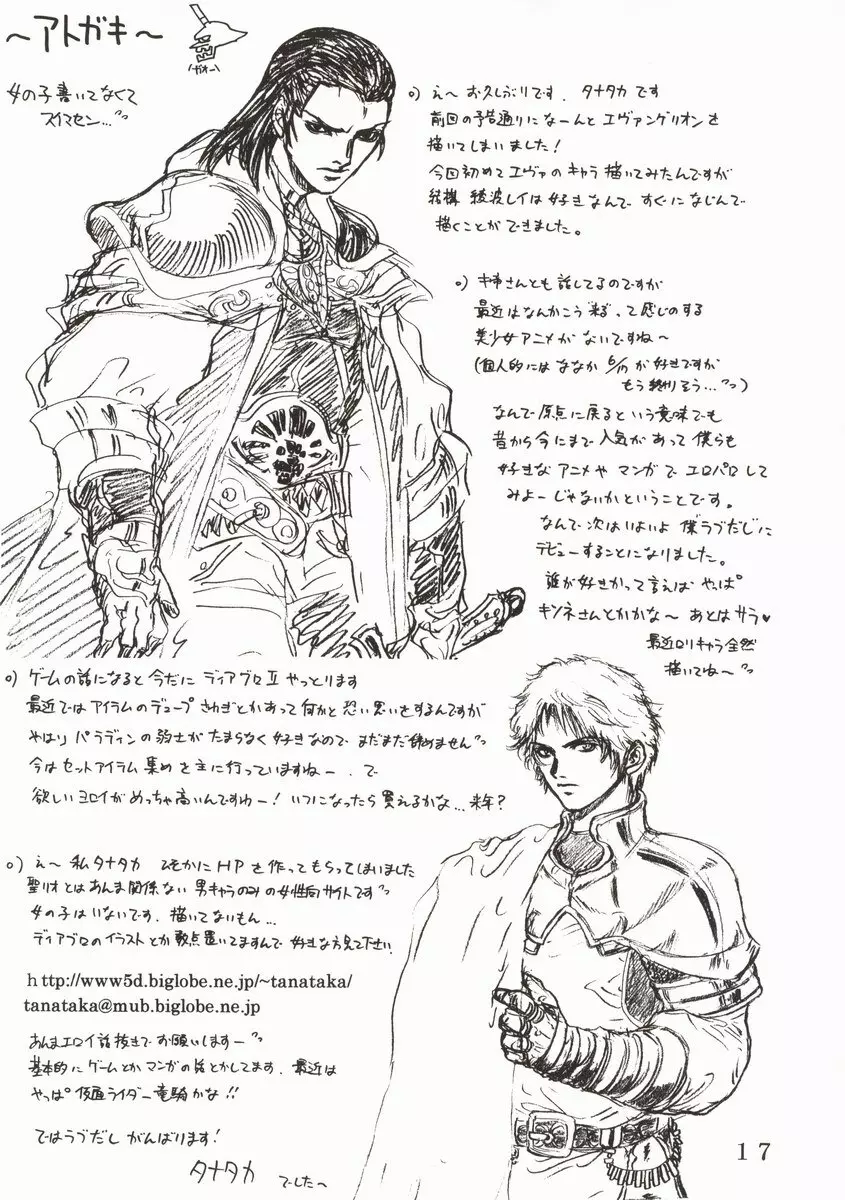 ～アトガキ～
(ガオー)
女の子書いてなくて
スイマセン…
○) え～ お久しぶりです. タナタカ です
前回の予告通りに なーんと エヴァンゲリオンを
描いてしまいました!
今回初めて エヴァの キャラ 描いてみたんですが
結構 綾波レイは 好き なんで すぐに なじんで
描くことが できました。
○) 姉さんとも 話してるのですが
最近は なんかこう “来る” って 感じのする
美少女アニメが ないですね～
(個人的には ななか 6/17 が 好きですが
もう 終りそう…)
なんで 原点に 戻る という 意味でも
昔から今にまで 人気が あって 僕らも
好きな アニメや マンガ で エロパロ して
みよー じゃないか ということ です。
なんで 次は いよいよ 僕ラブだしに
デビューすることに なりました。
誰が 好きかって 言えば やっぱ
キツネさんとかかな～ あとは サラ♥
最近ロリキャラ全然
描いてね～
○) ゲームの 話になると 今だに ディアブロⅡ やっとります
最近では アイテムの デュープ さわぎとか あって 何かと 恐い 思いを するんですが
やはり パラディンの 勇士が たまらなく 好きなので まだまだ 辞めません
今は セットアイテム 集め を 主に 行っていますねー. で
欲しい ヨロイが めっちゃ 高いんですわー! いつになったら 買えるかな… 来年?
○) え～ 私 タナタカ ひそかに HP を 作って もらって しまいました
聖リオとは あんま 関係 ない 男キャラのみ の 女性向サイトです
女の子は いないです. 描いて ないもん…
ディアブロの イラスト とか 数点 置いてますんで 好きな方見て下さい
http://www5d.biglobe.ne.jp/~tanataka/
tanataka@mub.biglobe.ne.jp
あんま エロイ 話 抜きで お願いしますー
基本的に ゲームとか マンガの 話 とか してます. 最近は
やっぱ 仮面ライダー 竜騎かな!!
では ラブだし がんばります!
タナタカ でした～
17